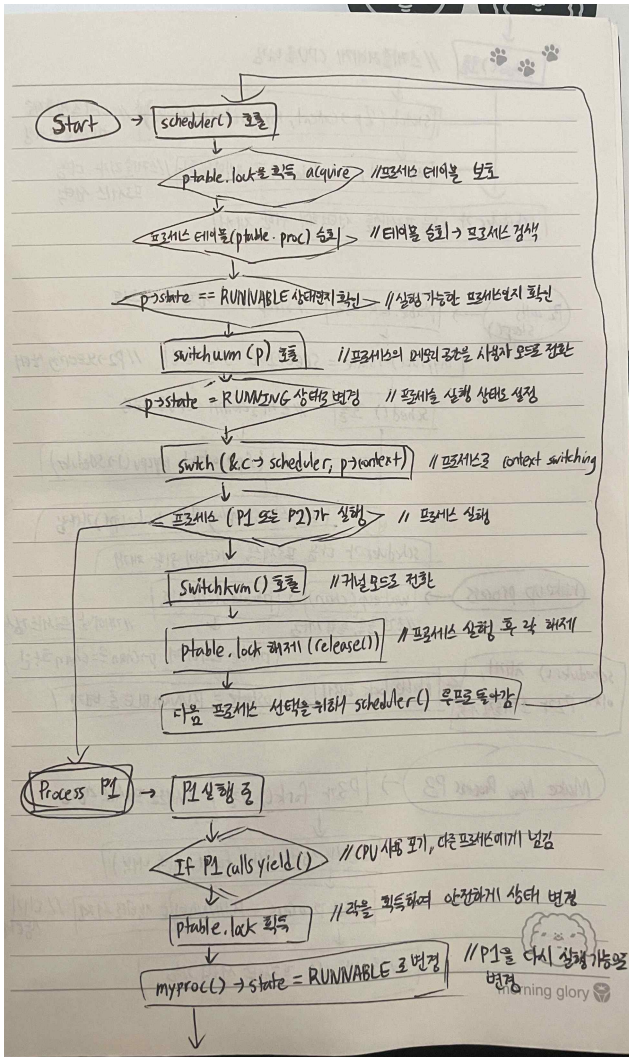 Start → scheduler() 호출
ptable.lock을 획득 acquire //프로세스 테이블 보호
프로세스 테이블(ptable.proc) 순회 //테이블 순회 → 프로세스 검색
p→state == RUNNABLE 상태인지 확인 //실행 가능한 프로세스인지 확인
switchuvm(p) 호출 //프로세스의 메모리 공간을 사용자 모드로 전환
p→state = RUNNING 상태로 변경 //프로세를 실행 상태로 설정
swtch(&c→scheduler, p→context) //프로세스로 context switching
프로세스 (P1 또는 P2)가 실행 // 프로세스 실행
switchkvm() 호출 //커널모드로 전환
ptable.lock 해제(release()) //프로세스 실행 후 락 해제
다음 프로세스 선택을 위해 scheduler() 루프로 돌아감
Process P1 → P1 실행 중
If P1 calls yield() //CPU 사용 포기, 다른 프로세스에게 넘김
ptable.lock 획득 //락을 획득하여 안전하게 상태 변경
myproc() → state = RUNNABLE로 변경 //P1을 다시 실행 가능으로
변경
morning glory